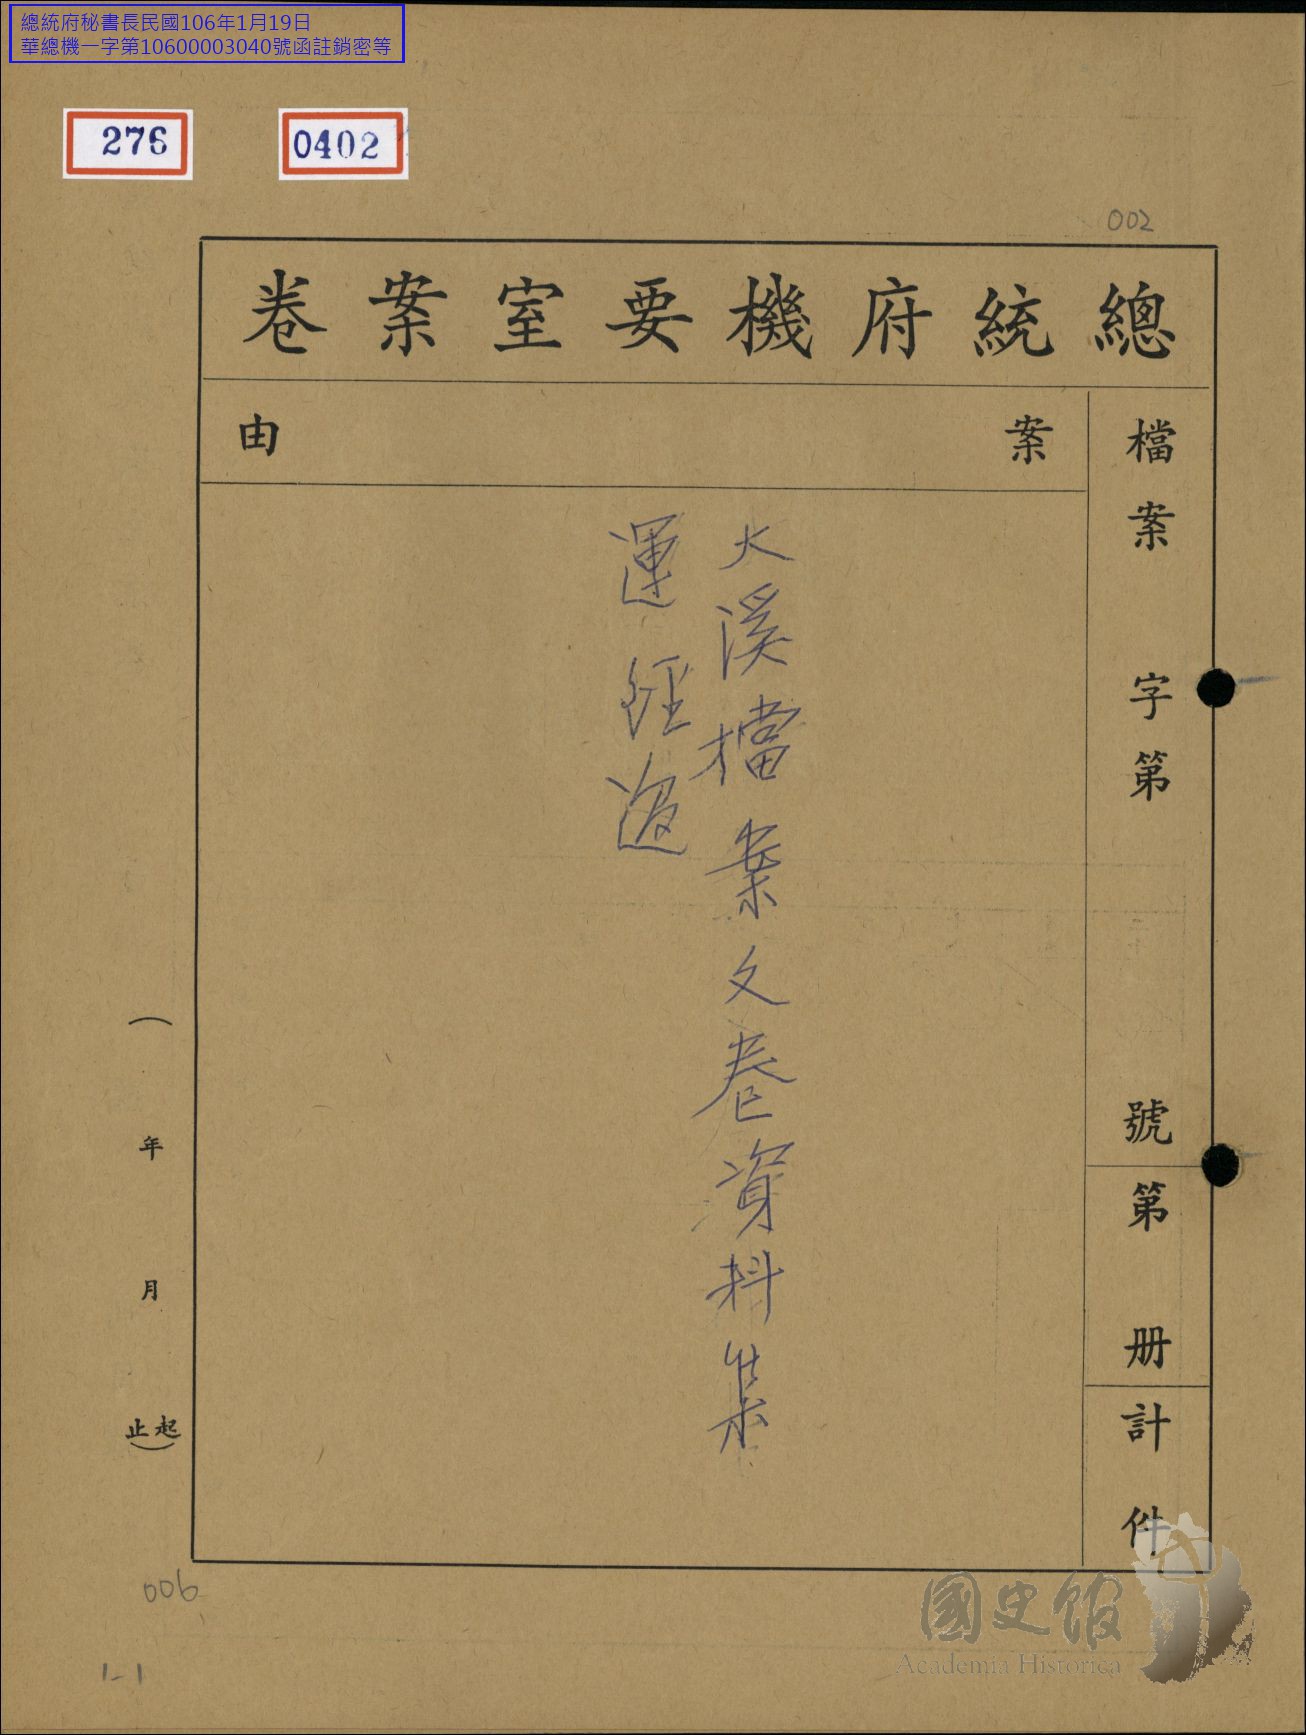 總統府秘書長民國106年1月19日
華總機一字第10600003040號函註銷密等
276
0402
002
總統府機要室案卷
檔案 字第 號
第 册
計 件
案 由
大溪檔案文卷資料集
運經過
( 年 月 起止)
006
1-1
國史館
Academia Historica